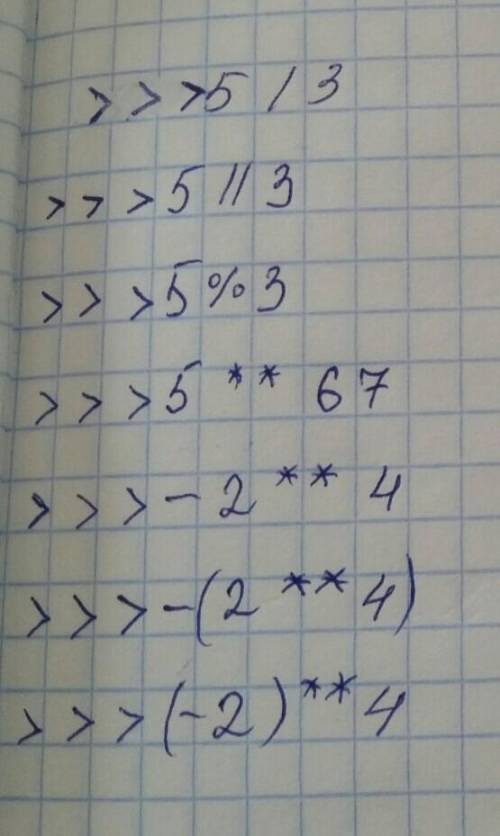 >>>5 / 3
>>>5 // 3
>>>5 % 3
>>>5 ** 67
>>>-2 ** 4
>>>-(2 ** 4)
>>>(-2) ** 4